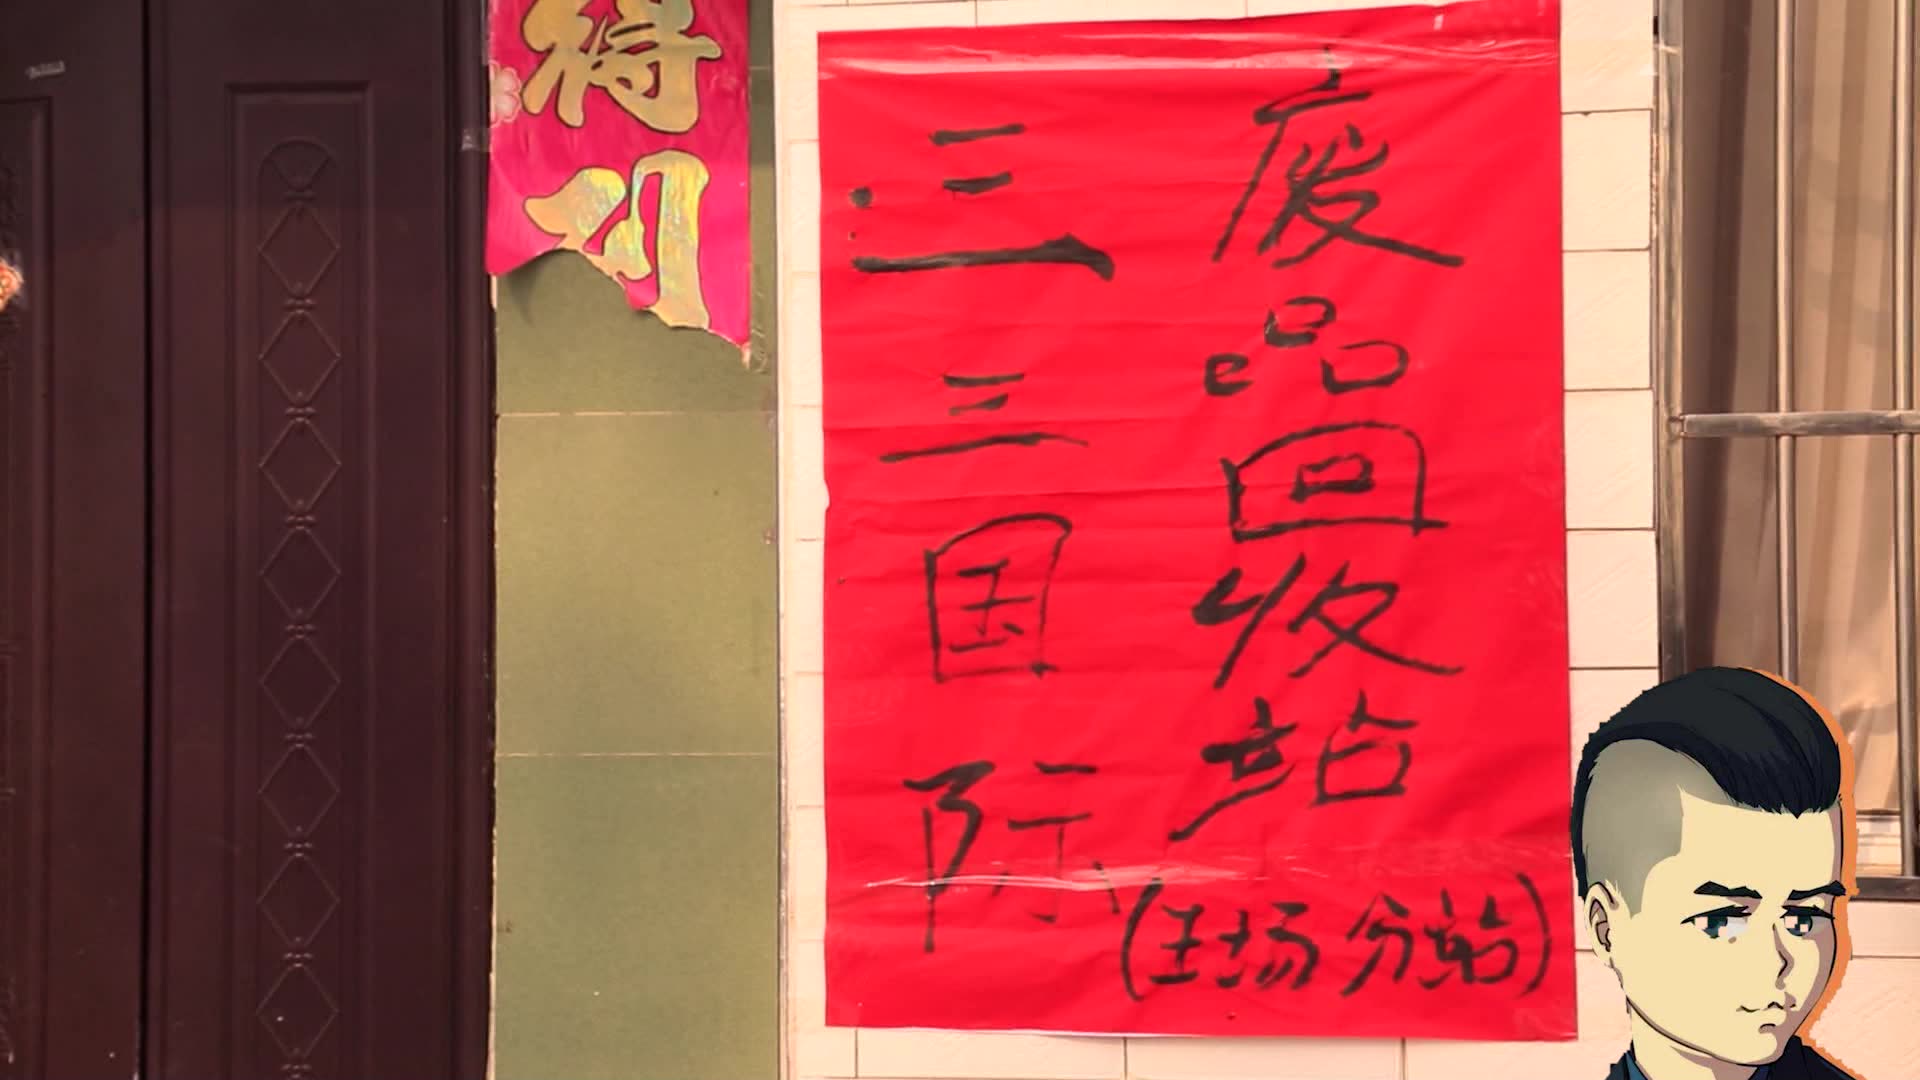 得利
三三国际
废品回收站
(王场分站)